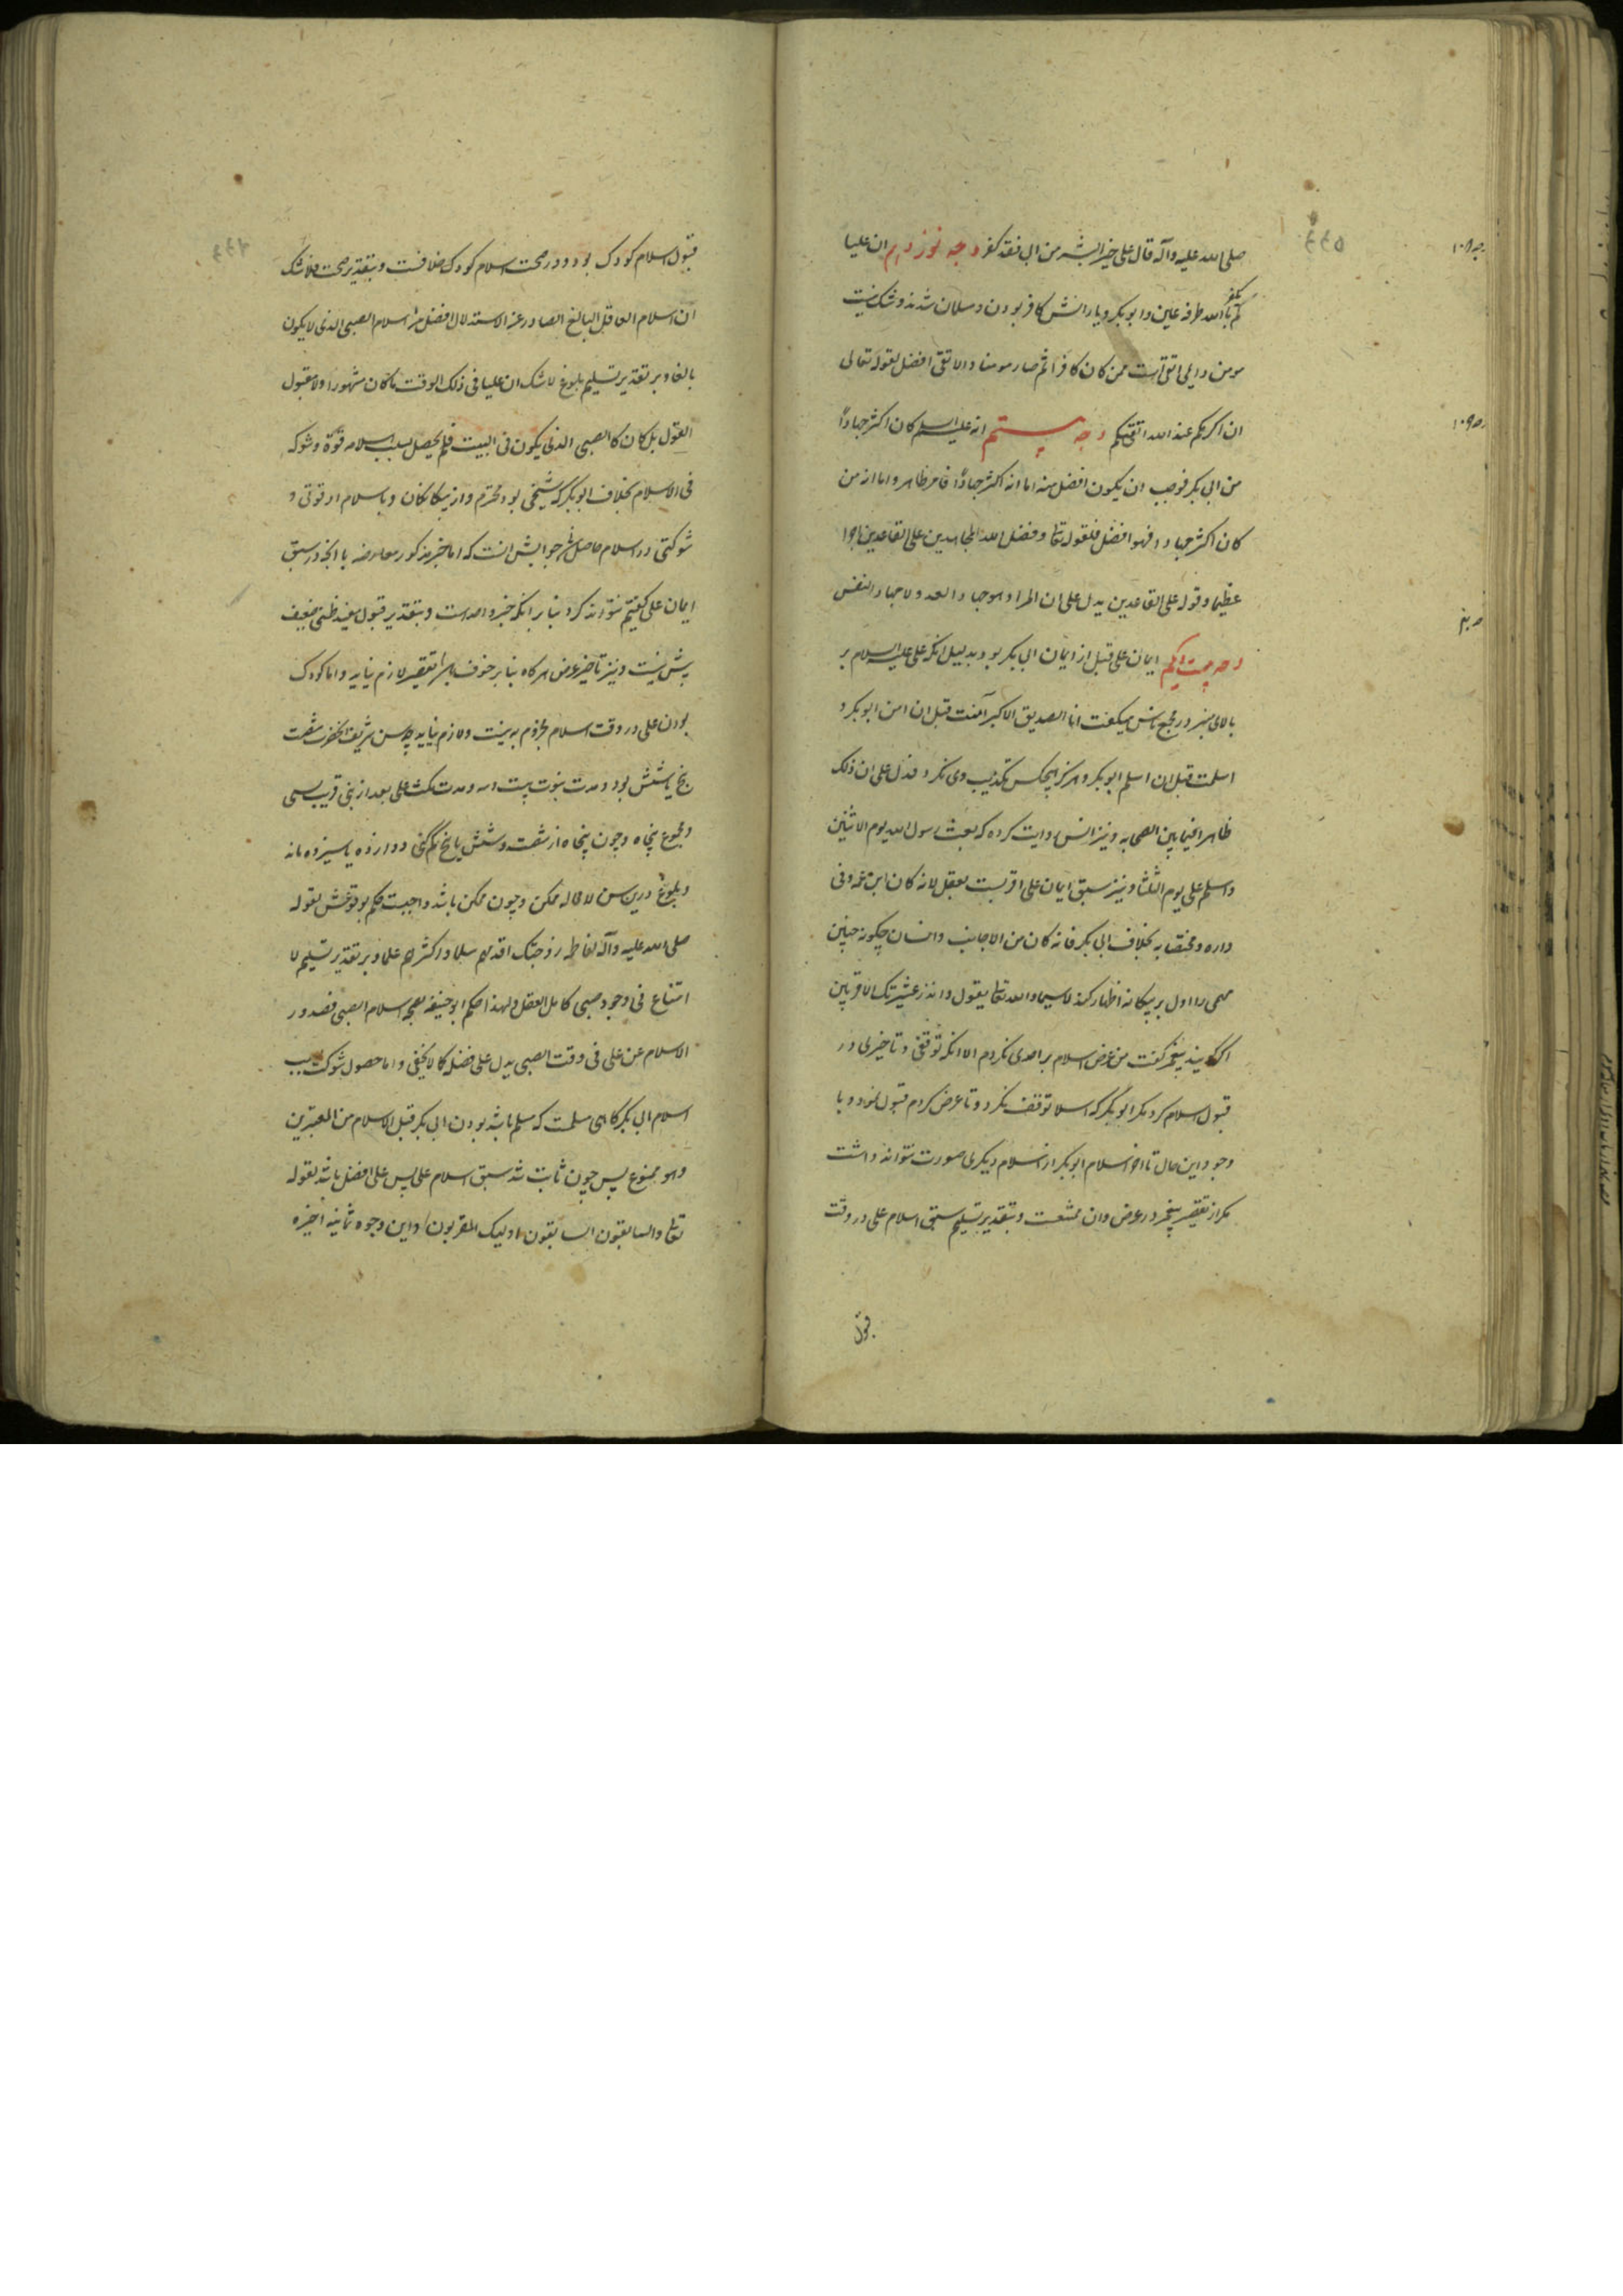 صلی الله علیه وآله قال علی خیر البشر من ابی فقد کفر وجه نوزدهم ان علیا
لم یکفر بالله طرفة عین و ابوبکر و یارانش کافر بودن و مسلمان شدند و شک نیست
مومن دایمی اتقی است ممن کان کافرا ثم صار مومنا والاتقی افضل لقوله تعالی
ان اکرمکم عند الله اتقیکم وجه بیستم انه علیه السلم کان اکثر جهاداً
من ابی بکر فوجب ان یکون افضل منه اما انه اکثر جهاداً فامر ظاهر و اما ان من
کان اکثر جهادا فهو افضل فلقوله تعا و فضل الله المجاهدین علی القاعدین اجرا
عظیما و قوله علی القاعدین یدل علی ان المراد هو جهاد العدو لا جهاد النفس
وجه بیست و یکم ایمان علی قبل از ایمان ابی بکر بود بدلیل انکه علی علیه السلام بر
بالای منبر در مجمع ناس میکفت انا الصدیق الاکبر آمنت قبل ان امن ابوبکر و
اسلمت قبل ان اسلم ابوبکر و هرکز هیچکس تکذیب وی نکرد فدل علی ان ذلک
ظاهرا فیما بین الصحابه و نیز انس روایت کرده که بعث رسول الله یوم الاثنین
و اسلم علی یوم الثلثا و نیز سبق ایمان علی اقربست بعقل لانه کان ابن عمه و فی
داره و مختصا به بخلاف ابی بکر فانه کان من الاجانب و انسان چکونه چنین
مهمی را اول بر بیکانه اظهار کند لا سیما و الله تعا یقول و انذر عشیرتک الاقربین
اکر کویند پیغمبر کفت من عرض اسلام بر احدی نکردم الا انکه توقفی و تاخیری در
قبول اسلام کرد مکر ابوبکر که اسلا توقف نکرد و تا عرض کردم قبول نمود و با
وجود این حال تاخر اسلام ابوبکر از اسلام دیکری صورت نتواند داشت
مکر از تقصیر پیغمبر در عرض و ان ممتنعست و بتقدیر تسلیم سبق اسلام علی در وقت
قبول
قبول اسلام کودک بود و در صحت اسلام کودک خلافست و بتقدیر صحت فلا شک
ان اسلام العاقل البالغ الصادر عن الاستدلال افضل من اسلام الصبی الذی لا یکون
بالغا و بر تقدیر تسلیم بلوغ لا شک ان علیا فی ذلک الوقت ما کان مشهورا و لا مقبول
القول بل کان کالصبی الذی یکون فی البیت فلم یحصل بسبب اسلامه قوة و شوکه
فی الاسلام بخلاف ابوبکر که شیخی بود محترم و از بیکانکان و باسلام او قوتی و
شوکتی در اسلام حاصل شد جوابش انست که اما خبر مذکور معارضه با انچه در سبق
ایمان علی کفتیم نتواند کرد بنا بر انکه خبر واحد است و بتقدیر قبول مفید ظنی ضعیف
بیش نیست و نیز تاخیر عرض هرکاه بنا بر خوف باشد تقصیر لازم نیاید و اما کودک
بودن علی در وقت اسلام مجزوم به نیست و لازم نیاید چه سن شریف آنحضرت شصت
پنج یا شش بود و مدت نبوت بیست و سه و مدت مکث علی بعد از نبی قریب سی
و مجموع پنجاه و چون پنجاه از شصت و شش یا پنج کم کنی دوازده یا سیزده ماند
و بلوغ درین سن لا محاله ممکن و چون ممکن باشد واجبست حکم بوقوعش لقوله
صلی الله علیه وآله لفاطمه زوجتک اقدمهم سلما و اکثرهم علما و بر تقدیر تسلیم لا
امتناع فی وجود صبی کامل العقل و لهذا حکم ابو حنیفه بصحه اسلام الصبی فصدور
الاسلام عن علی فی وقت الصبی یدل علی فضله کما لا یخفی و اما حصول شوکت بسبب
اسلام ابی بکر کاهی مسلمست که مسلم باشد بودن ابی بکر قبل الاسلام من المعتبرین
و هو ممنوع پس چون ثابت شد سبق اسلام علی پس علی افضل باشد لقوله
تعا و السابقون السابقون اولیک المقربون و این وجوه ثمانیه اخیره